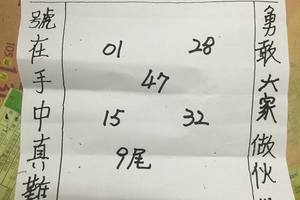 勇敢大家做伙
01 28
47
15 32
9尾
號在手中真難